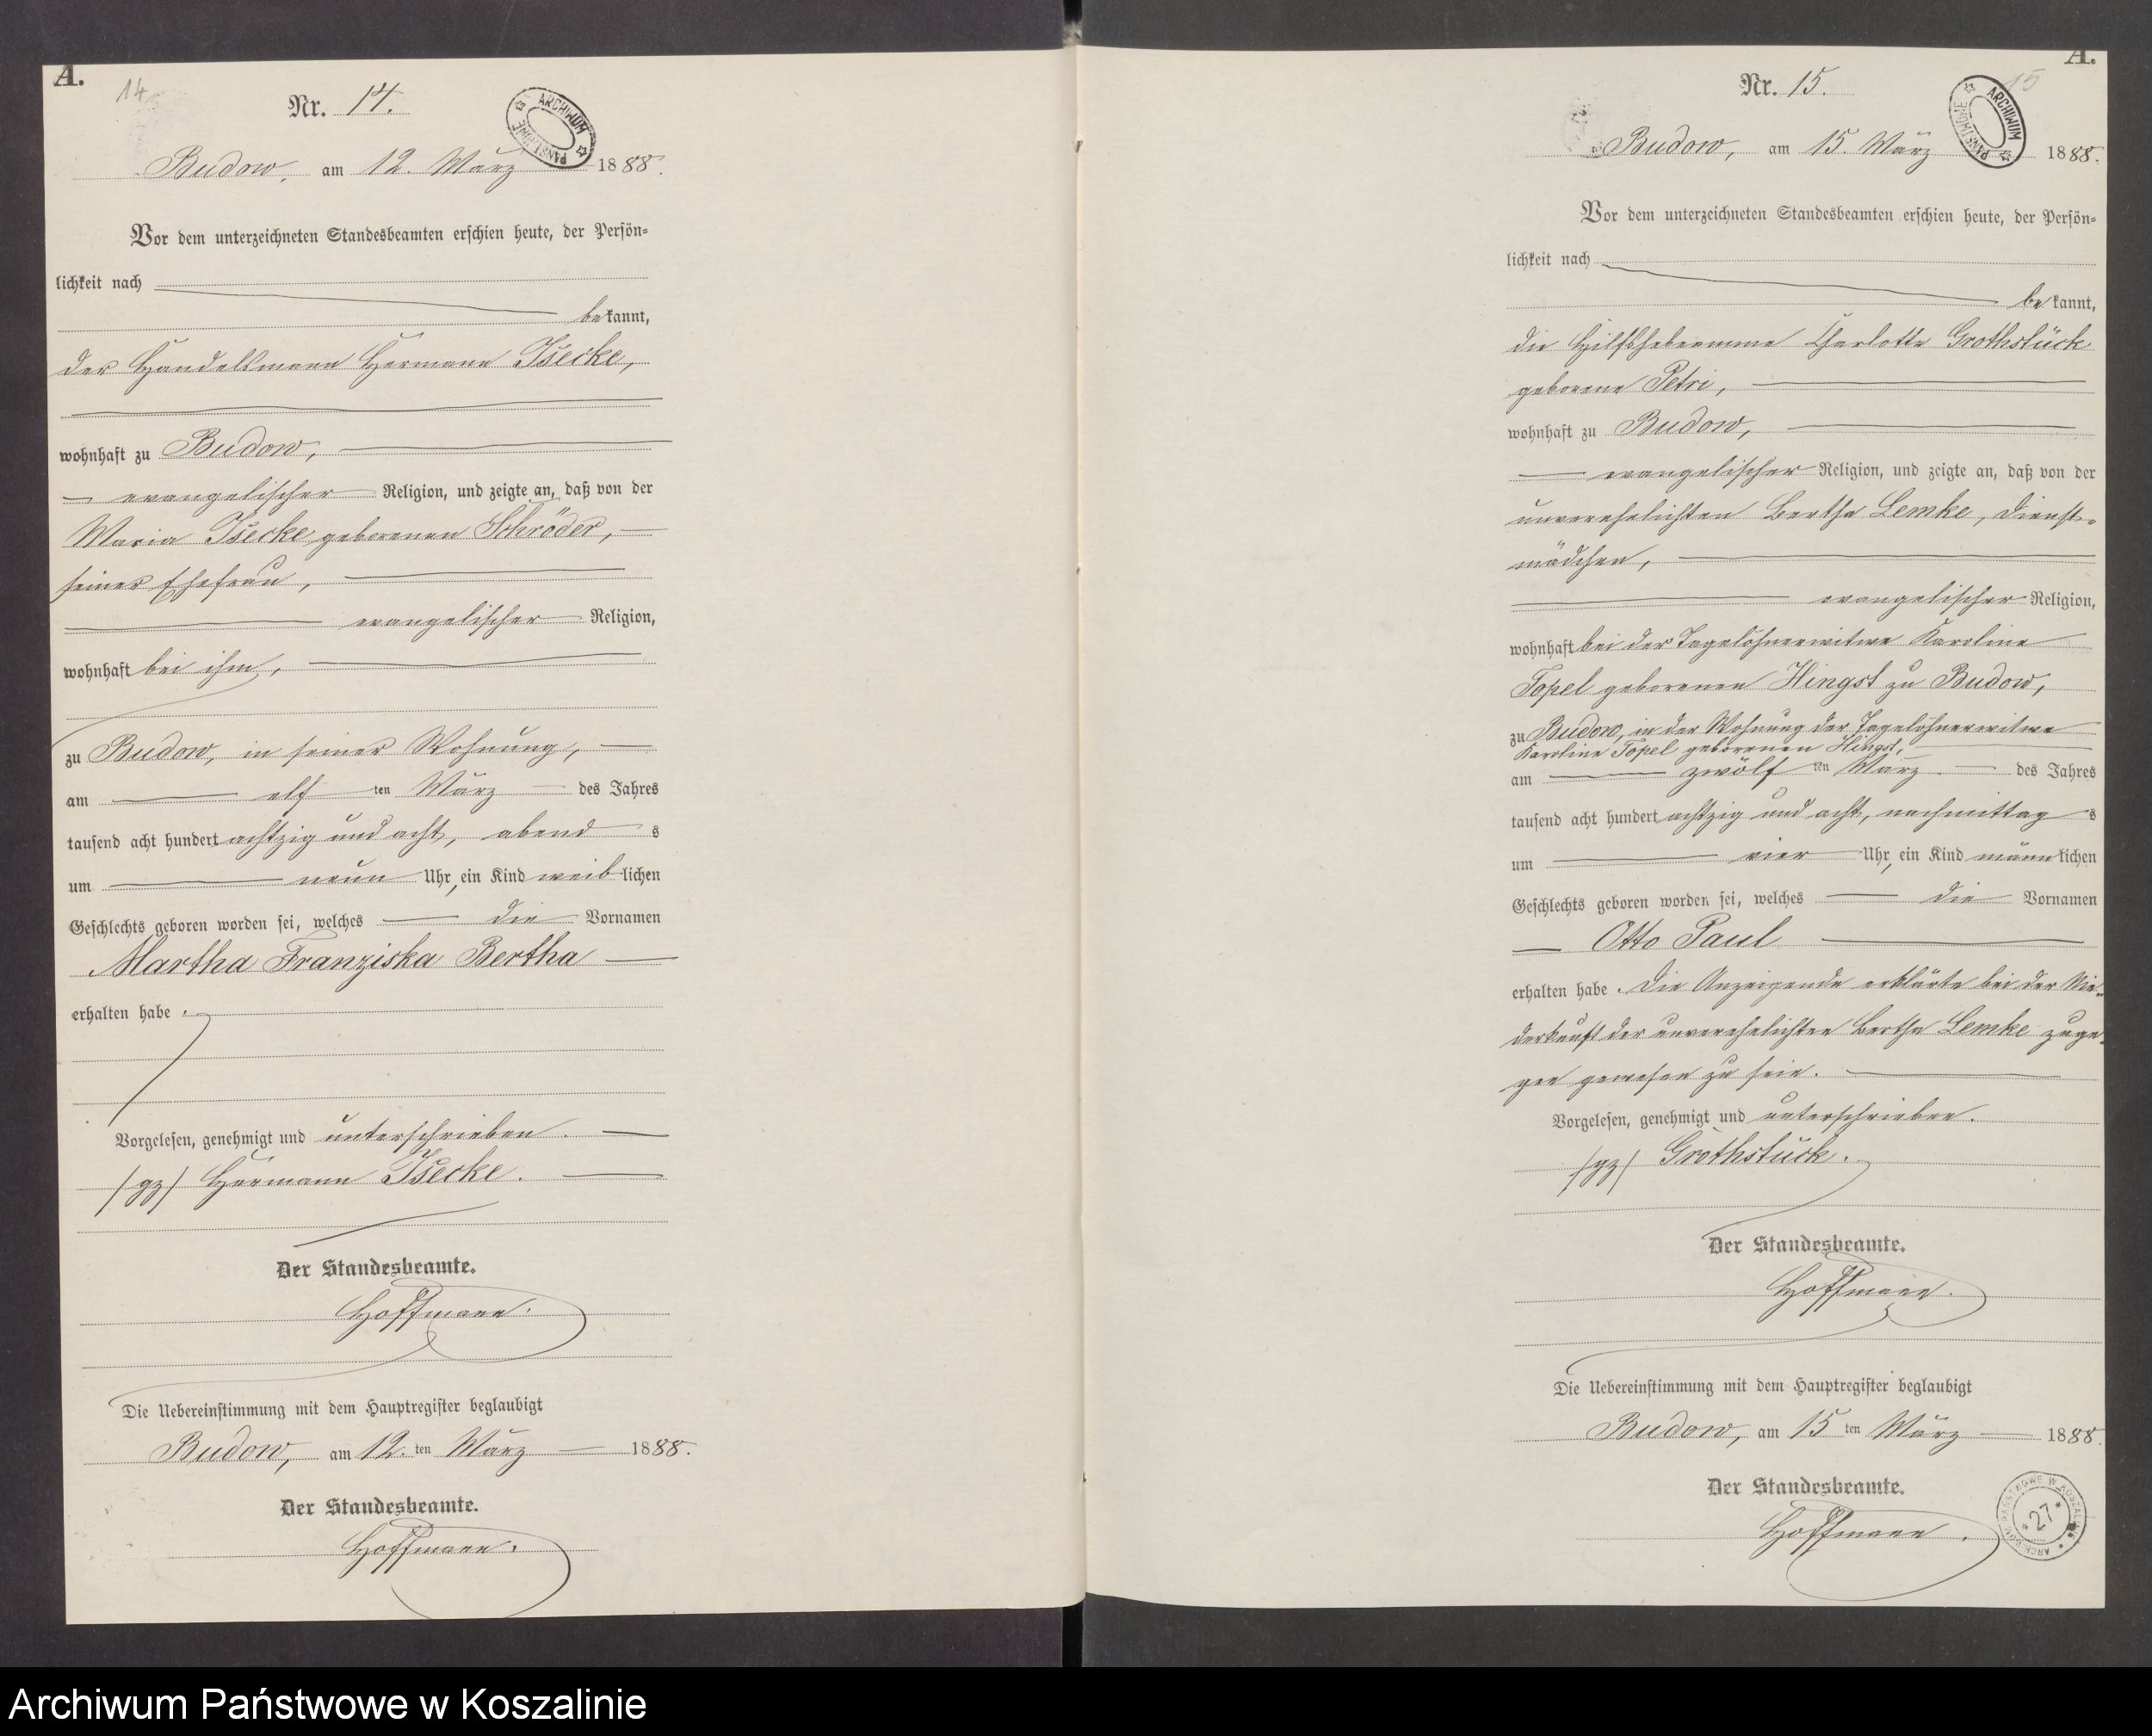 A.
14
Nr. 14.
ARCHIWUM PAŃSTWOWE
Budow, am 12. März 1888.
Vor dem unterzeichneten Standesbeamten erschien heute, der Persön=
lichkeit nach
bekannt,
der Handelsmann Hermann
wohnhaft zu Budow,
evangelischer Religion, und zeigte an, daß von der
Maria geborenen Schröder,
seiner Ehefrau,
evangelischer Religion,
wohnhaft bei ihm,
zu Budow, in seiner Wohnung,
am elf ten März des Jahres
tausend acht hundert achtzig und acht, abend s
um neun Uhr, ein Kind weiblichen
Geschlechts geboren worden sei, welches die Vornamen
Martha Franziska Bertha
erhalten habe.
Vorgelesen, genehmigt und unterschrieben.
/gz/ Hermann
Der Standesbeamte.
Hoffmann.
Die Uebereinstimmung mit dem Hauptregister beglaubigt
Budow, am 12. ten März 1888.
Der Standesbeamte.
Hoffmann.
A.
15
Nr. 15.
ARCHIWUM PAŃSTWOWE
Budow, am 15. März 1888.
Vor dem unterzeichneten Standesbeamten erschien heute, der Persön=
lichkeit nach
bekannt,
die Hilfshebeamme Charlotte Grothstück
geborene Petri,
wohnhaft zu Budow,
evangelischer Religion, und zeigte an, daß von der
unverehelichten Bertha Lemke, Dienst-
mädchen,
evangelischer Religion,
wohnhaft bei der Tagelöhnerwitwe Karoline
Topel geborenen Hingst zu Budow,
zu Budow, in der Wohnung der Tagelöhnerwitwe
Karoline Topel geborenen Hingst,
am zwölf ten März des Jahres
tausend acht hundert achtzig und acht, nachmittag s
um vier Uhr, ein Kind männlichen
Geschlechts geboren worden sei, welches die Vornamen
Otto Paul
erhalten habe. Die Anzeigende erklärte bei der Nie-
derkunft der unverehelichten Bertha Lemke zuge-
gen gewesen zu sein.
Vorgelesen, genehmigt und unterschrieben.
/gz/ Grothstück.
Der Standesbeamte.
Hoffmann.
Die Uebereinstimmung mit dem Hauptregister beglaubigt
Budow, am 15 ten März 1888.
Der Standesbeamte.
Hoffmann.
ARCHIWUM PAŃSTWOWE W KOSZALINIE
*27*
Archiwum Państwowe w Koszalinie